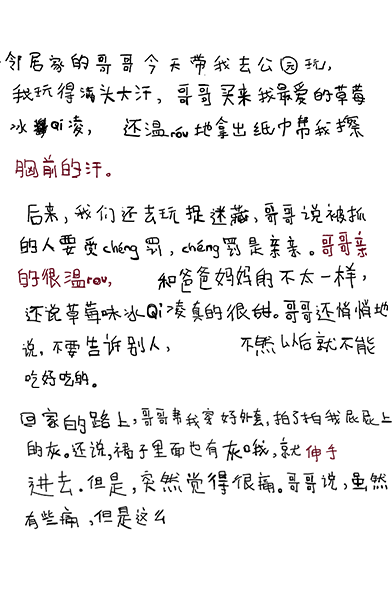 邻居家的哥哥今天带我去公园玩，
我玩得满头大汗，哥哥买来我最爱的草莓
冰Qi凌， 还温róu地拿出纸巾帮我擦
胸前的汗。
后来，我们还去玩捉迷藏，哥哥说被抓
的人要受chéng罚，chéng罚是亲亲。哥哥亲
的很温rou， 和爸爸妈妈的不太一样，
还说草莓味冰Qi凌真的很甜。哥哥还悄悄地
说，不要告诉别人， 不然以后就不能
吃好吃的。
回家的路上，哥哥帮我穿好外套，拍了拍我屁屁上
的灰。还说，裙子里面也有灰哦，就伸手
进去。但是，突然觉得很痛。哥哥说，虽然
有些痛，但是这么